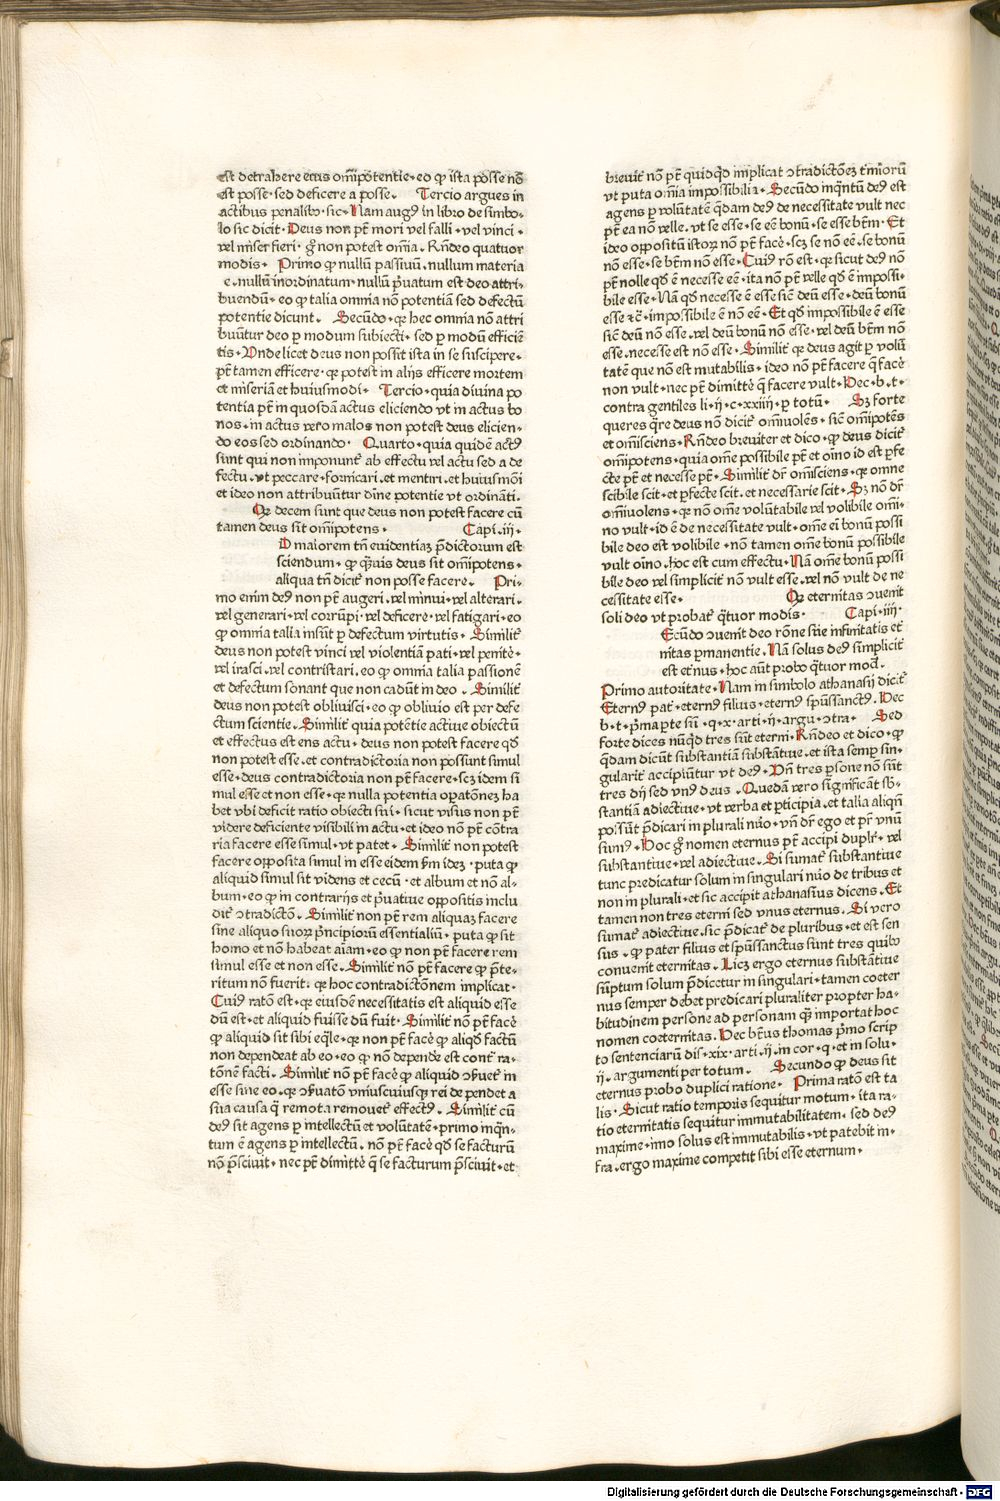 est detrahere eius om̄ipotentie·eo ꝙ ista posse nō
est posse·sed deficere a posse· Tercio argues in
actibus penalibꝰ·sic·Nam augꝰ in libro de simbo-
lo sic dicit·Deus non pn̄t mori vel falli·vel vinci·
vel miser fieri·ḡ non potest om̄ia·Rn̄deo quatuor
modis· Primo ꝙ nullū passiuū·nullum materia
e·nullū inordinatum·nullū p̄uatum est deo attri-
buendū·eo ꝙ talia omnia nō potentiā sed defectū
potentie dicunt· Secūdo·ꝙ hec omnia nō attri
buūtur deo ꝑ modum subiecti·sed ꝑ modū efficiē
tis·Unde licet deus non possit ista in se suscipere·
pt̄ tamen efficere·ꝙ potest in alijs efficere mortem
et miseriā et huiusmodi· Tercio·quia diuina po
tentia pt̄ in quosdā actus eliciendo vt in actus bo
nos·in actus vero malos non potest deus elicien-
do eos sed ordinando· Quarto·quia quidē actꝰ
sunt qui non imponunt᷑ ab effectu vel actu sed a de
fectu·vt peccare·fornicari·et mentiri·et huiusmōi
et ideo non attribuūtur diūne potentie vt ordināti·
Qꝙ decem sunt que deus non potest facere cū
tamen deus sit om̄ipotens· Capi·iij·
D maiorem tn̄ euidentiaꝫ p̄dictorum est
sciendum·ꝙ q̄uis deus sit om̄ipotens·
aliqua tn̄ dicit᷑ non posse facere· Pri-
mo enim deꝰ non pt̄ augeri·vel minui·vel alterari·
vel generari·vel corrūpi·vel deficere·vel fatigari·eo
ꝙ omnia talia insūt ꝑ defectum virtutis· Similit᷑
deus non potest vinci vel violentiā pati·vel penitē·
vel irasci·vel contristari·eo ꝙ omnia talia passionē
et defectum sonant que non cadūt in deo· Similit᷑
deus non potest obliuisci·eo ꝙ obliuio est per defe
ctum scientie·Similit᷑ quia potētie actiue obiectū
et effectus est ens actu·deus non potest facere qd̄
non potest esse·et contradictoria non possunt simul
esse·deus contradictoria non pt̄ facere·scꝫ idem si
mul esse et non esse·ꝙ nulla potentia oꝑatōneꝫ ha
bet vbi deficit ratio obiecti sui·sicut visus non pt̄
videre deficiente visibili in actu·et ideo nō pt̄ cōtra
ria facere esse simul·vt patet·Similit᷑ non potest
facere opposita simul in esse eidem ẜm ideꝫ·puta ꝙ
aliquid simul sit videns et cecū·et album et nō al-
bum·eo ꝙ in contrarijs et p̄uatiue oppositis inclu
dit᷑ ↄtradictō·Similit᷑ non pt̄ rem aliquaꝫ facere
sine aliquo suoꝝ p̄ncipiorū essentialiū·puta ꝙ sit
homo et nō habeat aīam·eo ꝙ non pt̄ facere rem
simul esse et non esse·Similit᷑ nō pt̄ facere ꝙ p̄te-
ritum nō fuerit·ꝙ hoc contradictōnem implicat·
Cuiꝰ ratō est·ꝙ eiusdē necessitatis est aliquid esse
dū est·et aliquid fuisse dū fuit·Similit᷑ nō pt̄ facē
ꝙ aliquid sit sibi eq̄le·ꝙ non pt̄ facē ꝙ aliqd̄ factū
non dependeat ab eo·eo ꝙ nō dependē est cont᷑ ra-
tōnē facti·Similit᷑ nō pt̄ facē ꝙ aliquid ↄẜuet᷑ in
esse sine eo·ꝙ ↄẜuatō vniuscuiusqꝫ rei de pendet a
sua causa q̄ remota remouet᷑ effectꝰ· Similit᷑ cū
deꝰ sit agens ꝑ intellectū et volūtatē·primo inq̄n-
tum ē agens ꝑ intellectū·nō pt̄ facē qd̄ se facturū
nō p̄sciuit·nec pt̄ dimittē q̄ se facturum p̄sciuit·et
breuit᷑ nō pt̄ quidqd̄ implicat ↄtradictōeꝫ t᷑mīorū
vt puta om̄ia impossibilia·Secūdo inq̄ntū deꝰ est
agens ꝑ volūtatē q̄dam deꝰ de necessitate vult nec
pt̄ ea nō velle·vt se esse·se eē bonū·se esse btm̄·Et
ideo oppositū istoꝝ nō pt̄ facē·scꝫ se nō eē·se bonū
nō esse·se btm̄ nō esse·Cuiꝰ rō est·ꝙ sicut deꝰ nō
pt̄ nolle qd̄ ē necesse eē·ita nō pt̄ velle qd̄ ē impossi-
bile esse·Nā qd̄ necesse ē esse sic̄ deū esse·deū bonū
esse ⁊c̄·impossibile ē nō eē·Et qd̄ impossibile ē esse
sic̄ deū nō esse·vel deū bonū nō esse·vel deū btm̄ nō
esse·necesse est nō esse·Similit᷑ ꝙ deus agit ꝑ volū
tatē que nō est mutabilis·ideo nō pt̄ facere q̄ facē
non vult·nec pt̄ dimittē q̄ facere vult·Hec·b·t·
contra gentiles li·ij·c·xxiiij·ꝑ totū· Sꝫ forte
queres q̄re deus nō dicit᷑ om̄iuolens·sic̄ om̄ipotēs
et om̄isciens·Rn̄deo breuiter et dico·ꝙ deus dicit᷑
om̄ipotens·quia om̄e possibile pt̄ et oīno id est ꝑfe
cte pt̄ et necesse pt̄·Similit᷑ dr̄ om̄isciens·ꝙ omne
scibile scit·et ꝑfecte scit·et necessarie scit·Sꝫ nō dr̄
om̄iuolens·ꝙ nō om̄e volūtabile vel volibile om̄i-
no vult·id ē de necessitate vult·om̄e ei bonū possi
bile deo est volibile·nō tamen om̄e bonū possibile
vult oīno·hoc est cum effectu·Nā om̄e bonū possi
bile deo vel simplicit᷑ nō vult esse·vel nō vult de ne
cessitate esse· Qꝙ eternitas ↄuenit
soli deo vt probat᷑ q̄tuor modis· Capi·iiij·
Ecūdo ↄuenit deo rōne sue infinitatis et᷑
nitas ꝑmanentie·Nā solus deꝰ simplicit᷑
est et᷑nus·hoc aūt probo q̄tuor mod·
Primo autoritate·Nam in simbolo athanasij dicit᷑
Eternꝰ pat᷑·eternꝰ filius·eternꝰ spūssanctꝰ·Hec
b·t·p̄ma parte sūī·q·x·arti·ij·argu·ↄtra· Sed
forte dices nūqd̄ tres sūt eterni·Rn̄deo et dico·ꝙ
q̄dam dicūt substantiā substātiue·et ista semꝑ sin-
gularit᷑ accipiūtur vt deꝰ·Vn̄ tres ꝑsone nō sūt
tres dij sed vnꝰ deus·Quedā vero significāt sb̄-
stantiā adiectiue·vt verba et ꝑticipia·et talia aliqn̄
possūt p̄dicari in plurali nūo·vn̄ dr̄ ego et pr̄ vnū
sumꝰ·Hoc ḡ nomen eternus pt̄ accipi duplr̄·vel
substantiue·vel adiectiue·Si sumat᷑ substantiue
tunc predicatur solum in singulari nūo de tribus et
non in plurali·et sic accipit athanasius dicens·Et
tamen non tres eterni sed vnus eternus·Si vero
sumat᷑ adiectiue·sic p̄dicat᷑ de pluribus·et est sen
sus·ꝙ pater filius et spūssanctus sunt tres quibꝰ
conuenit eternitas·Licꝫ ergo eternus substātiue
sūptum solum p̄dicetur in singulari·tamen coeter
nus semper debet predicari pluraliter propter ha-
bitudinem persone ad personam quā importat hoc
nomen coeternitas·Hec bt̄us thomas p̄mo scrip
to sentenciarū dis·xix·arti·ij·in cor·q·et in solu-
ij·argumenti per totum· Secundo ꝙ deus sit
eternus probo duplici ratione· Prima ratō est ta
lis·Sicut ratio temporis sequitur motum·ita ra-
tio eternitatis sequitur immutabilitatem·sed deꝰ
maxime·imo solus est immutabilis·vt patebit in-
fra·ergo maxime competit sibi esse eternum·
Digitalisierung gefördert durch die Deutsche Forschungsgemeinschaft - DFG